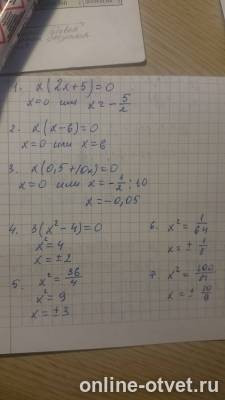 1. x(2x+5)=0
x=0 или x=-5/2
2. x(x-6)=0
x=0 или x=6
3. x(0,5+10x)=0
x=0 или x=-1/2:10
x=-0,05
4. 3(x²-4)=0
x²=4
x=±2
5. x²=36/4
x²=9
x=±3
6. x²=1/64
x=±1/8
7. x²=100/81
x=±10/9
online-otvet.ru